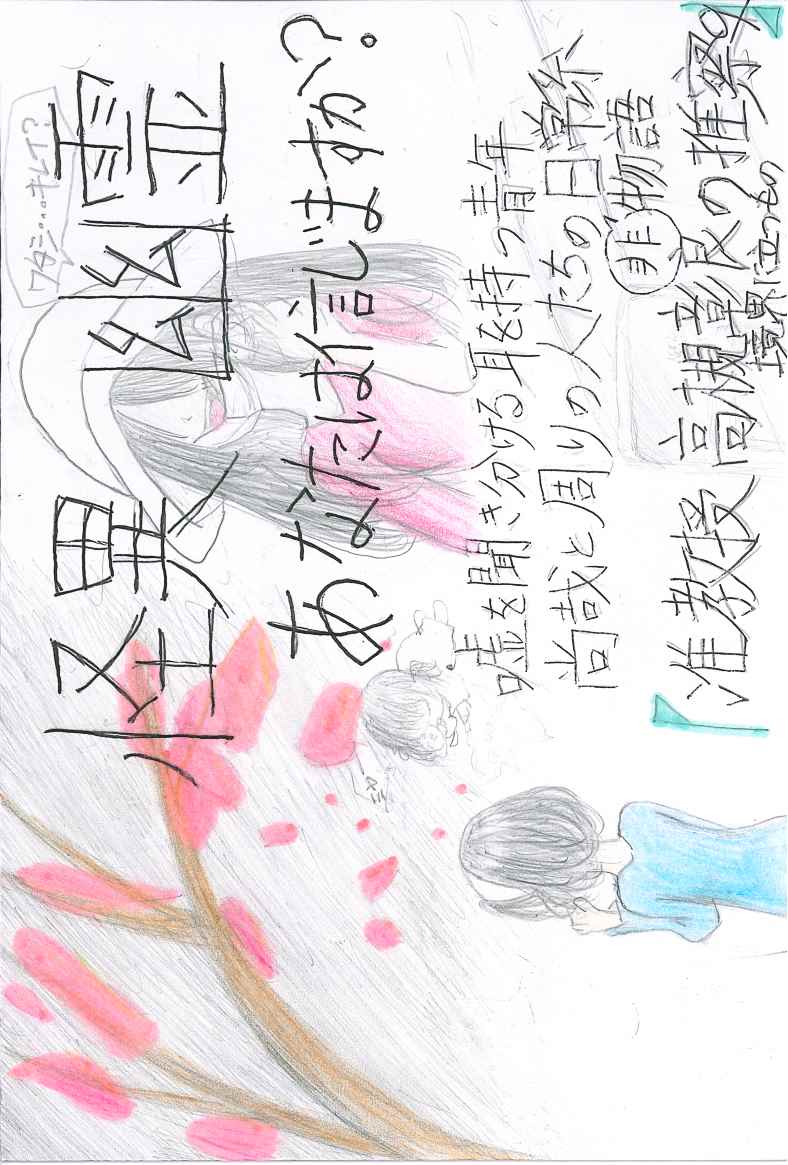 ワタシ...キレイ?
怪異 幽霊
あなたは信じますか?
嘘を聞き分ける耳を持つ青年
尚哉と周りの人たちの日常系
非物語
『准教授 高槻彰良の推察4』
境界に立つもの